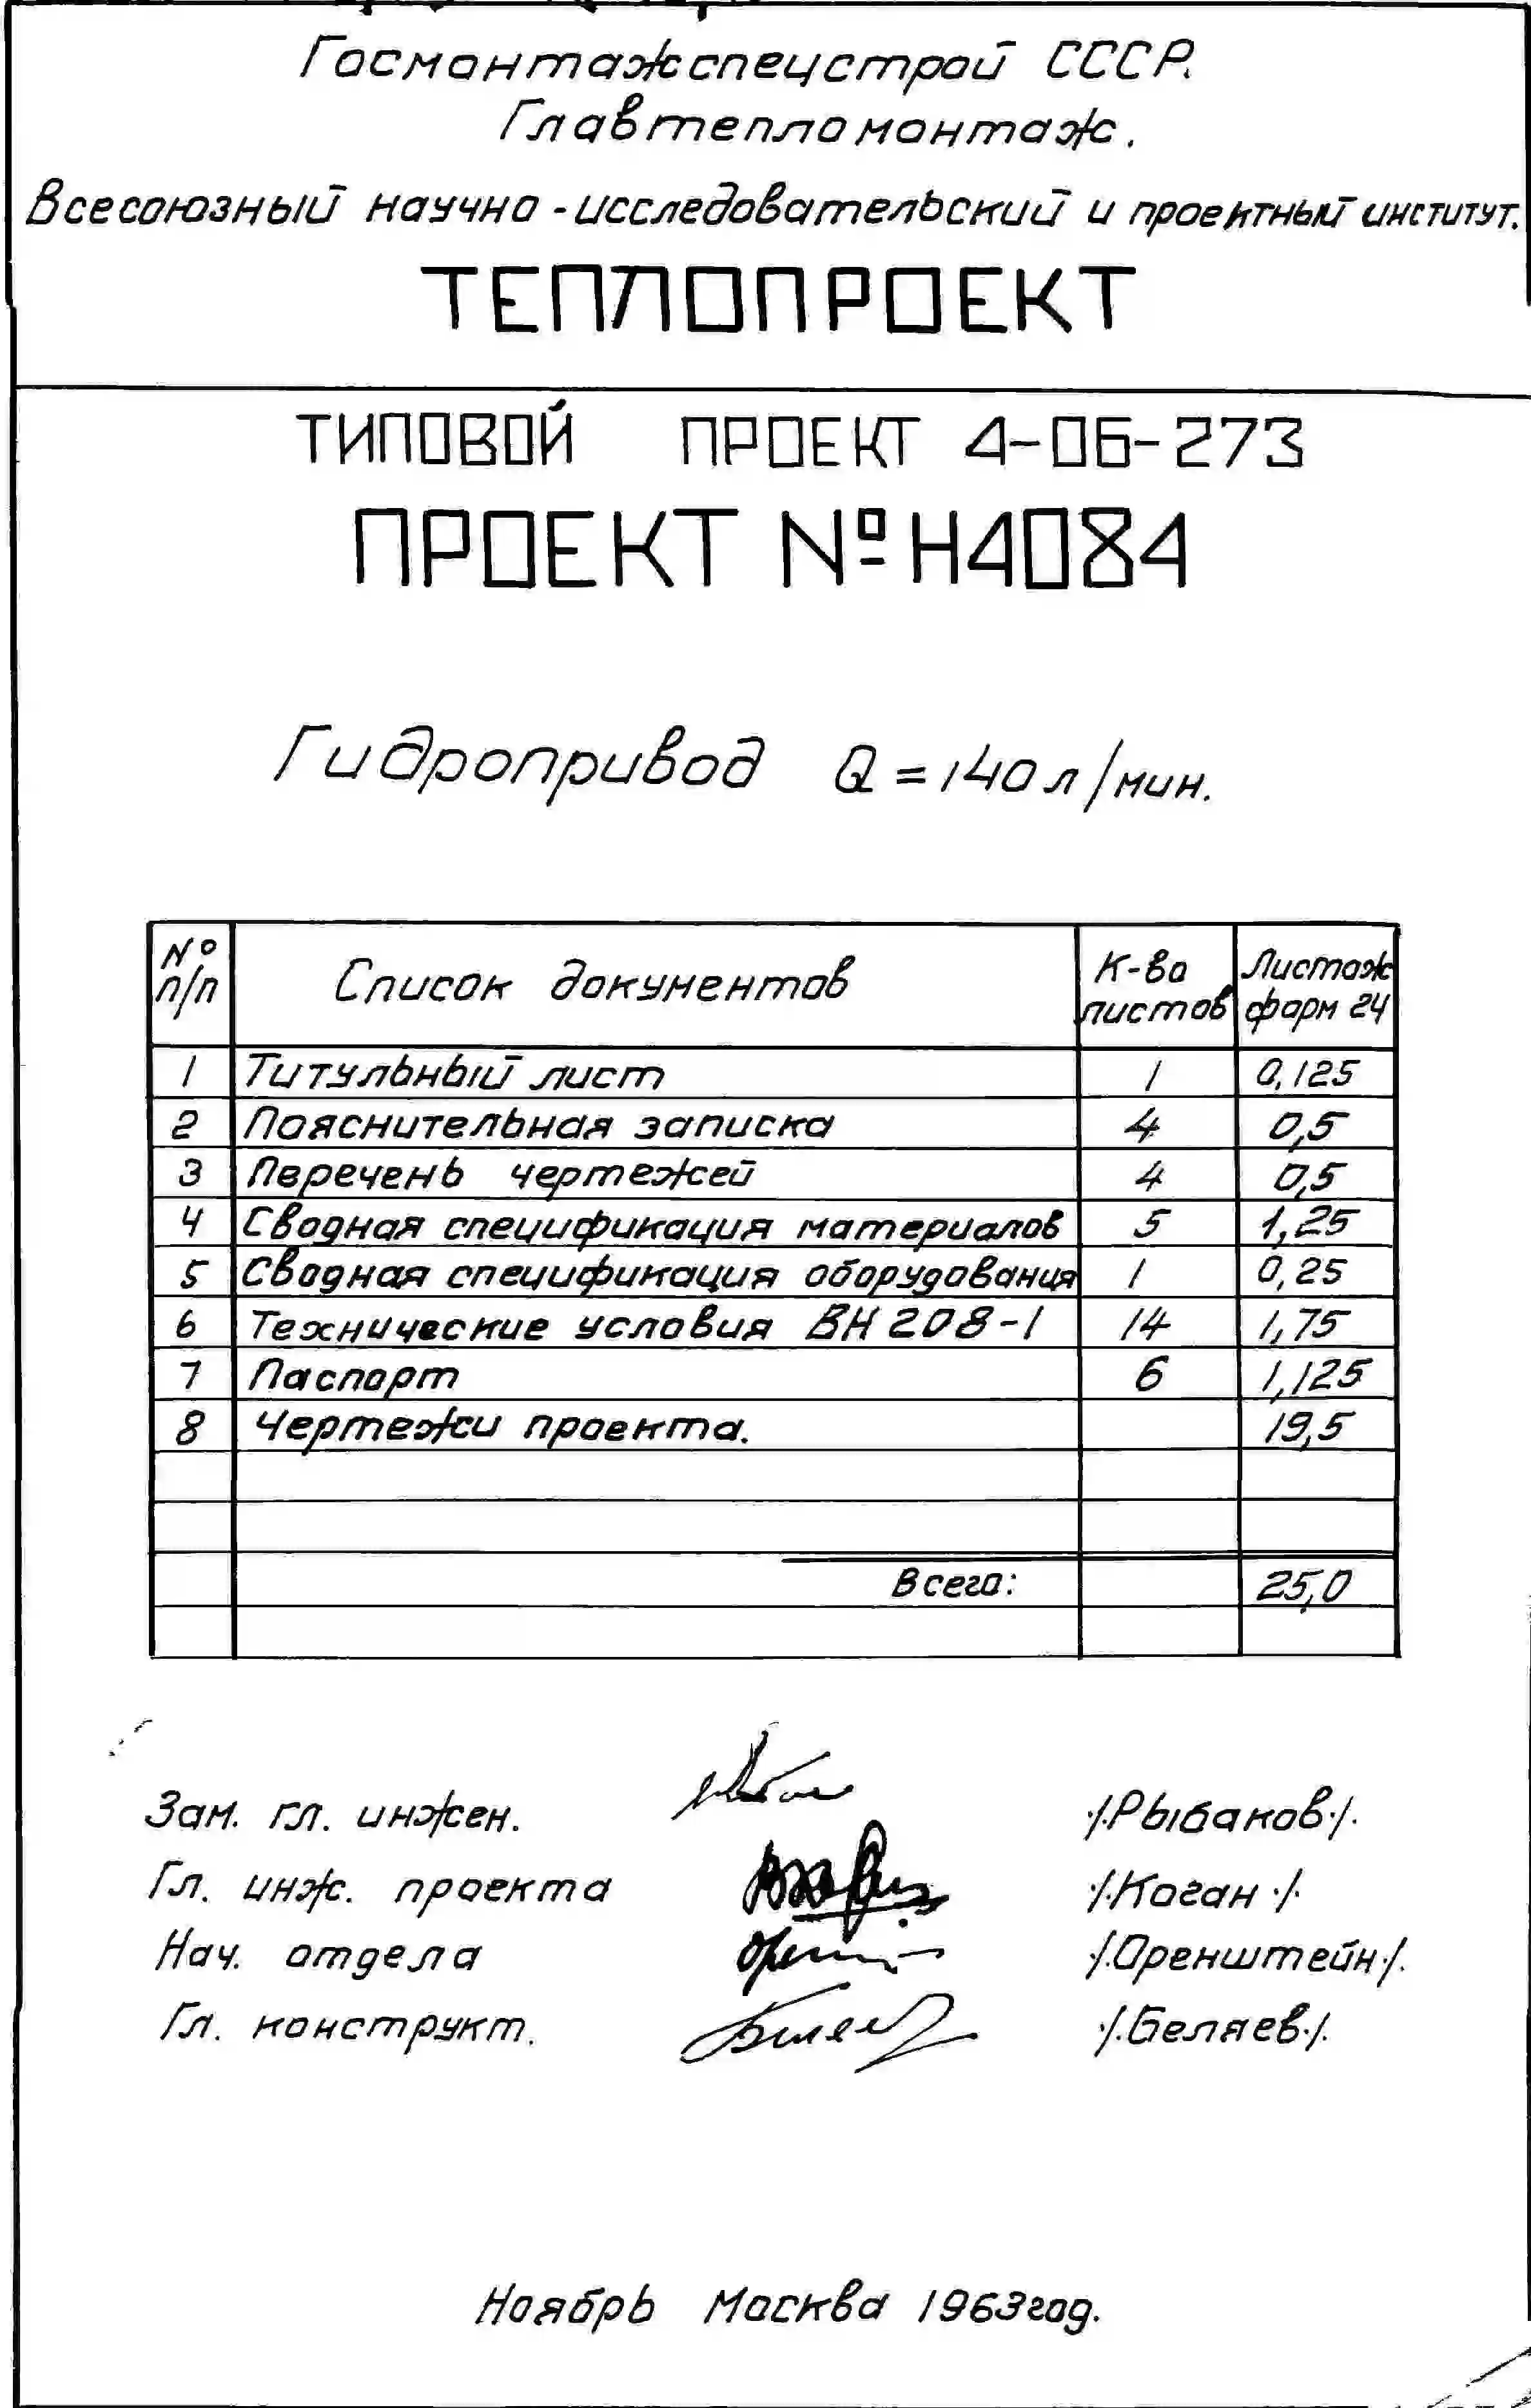 Госмонтажспецстрой СССР.
Главтепломонтаж.
Всесоюзный научно-исследовательский и проектный институт.
ТЕПЛОПРОЕКТ
ТИПОВОЙ ПРОЕКТ 4-06-273
ПРОЕКТ № Н4084
Гидропривод Q = 140 л/мин.
№ п/п Список документов К-во листов Листаж форм 24
1 Титульный лист 1 0,125
2 Пояснительная записка 4 0,5
3 Перечень чертежей 4 0,5
4 Сводная спецификация материалов 5 1,25
5 Сводная спецификация оборудования 1 0,25
6 Технические условия ВН 208-1 14 1,75
7 Паспорт 6 1,125
8 Чертежи проекта. 19,5
Всего: 25,0
Зам. гл. инжен. ·/.Рыбаков·/.
Гл. инж. проекта ·/.Коган·/.
Нач. отдела ·/.Оренштейн·/.
Гл. конструкт. ·/.Беляев·/.
Ноябрь Москва 1963год.